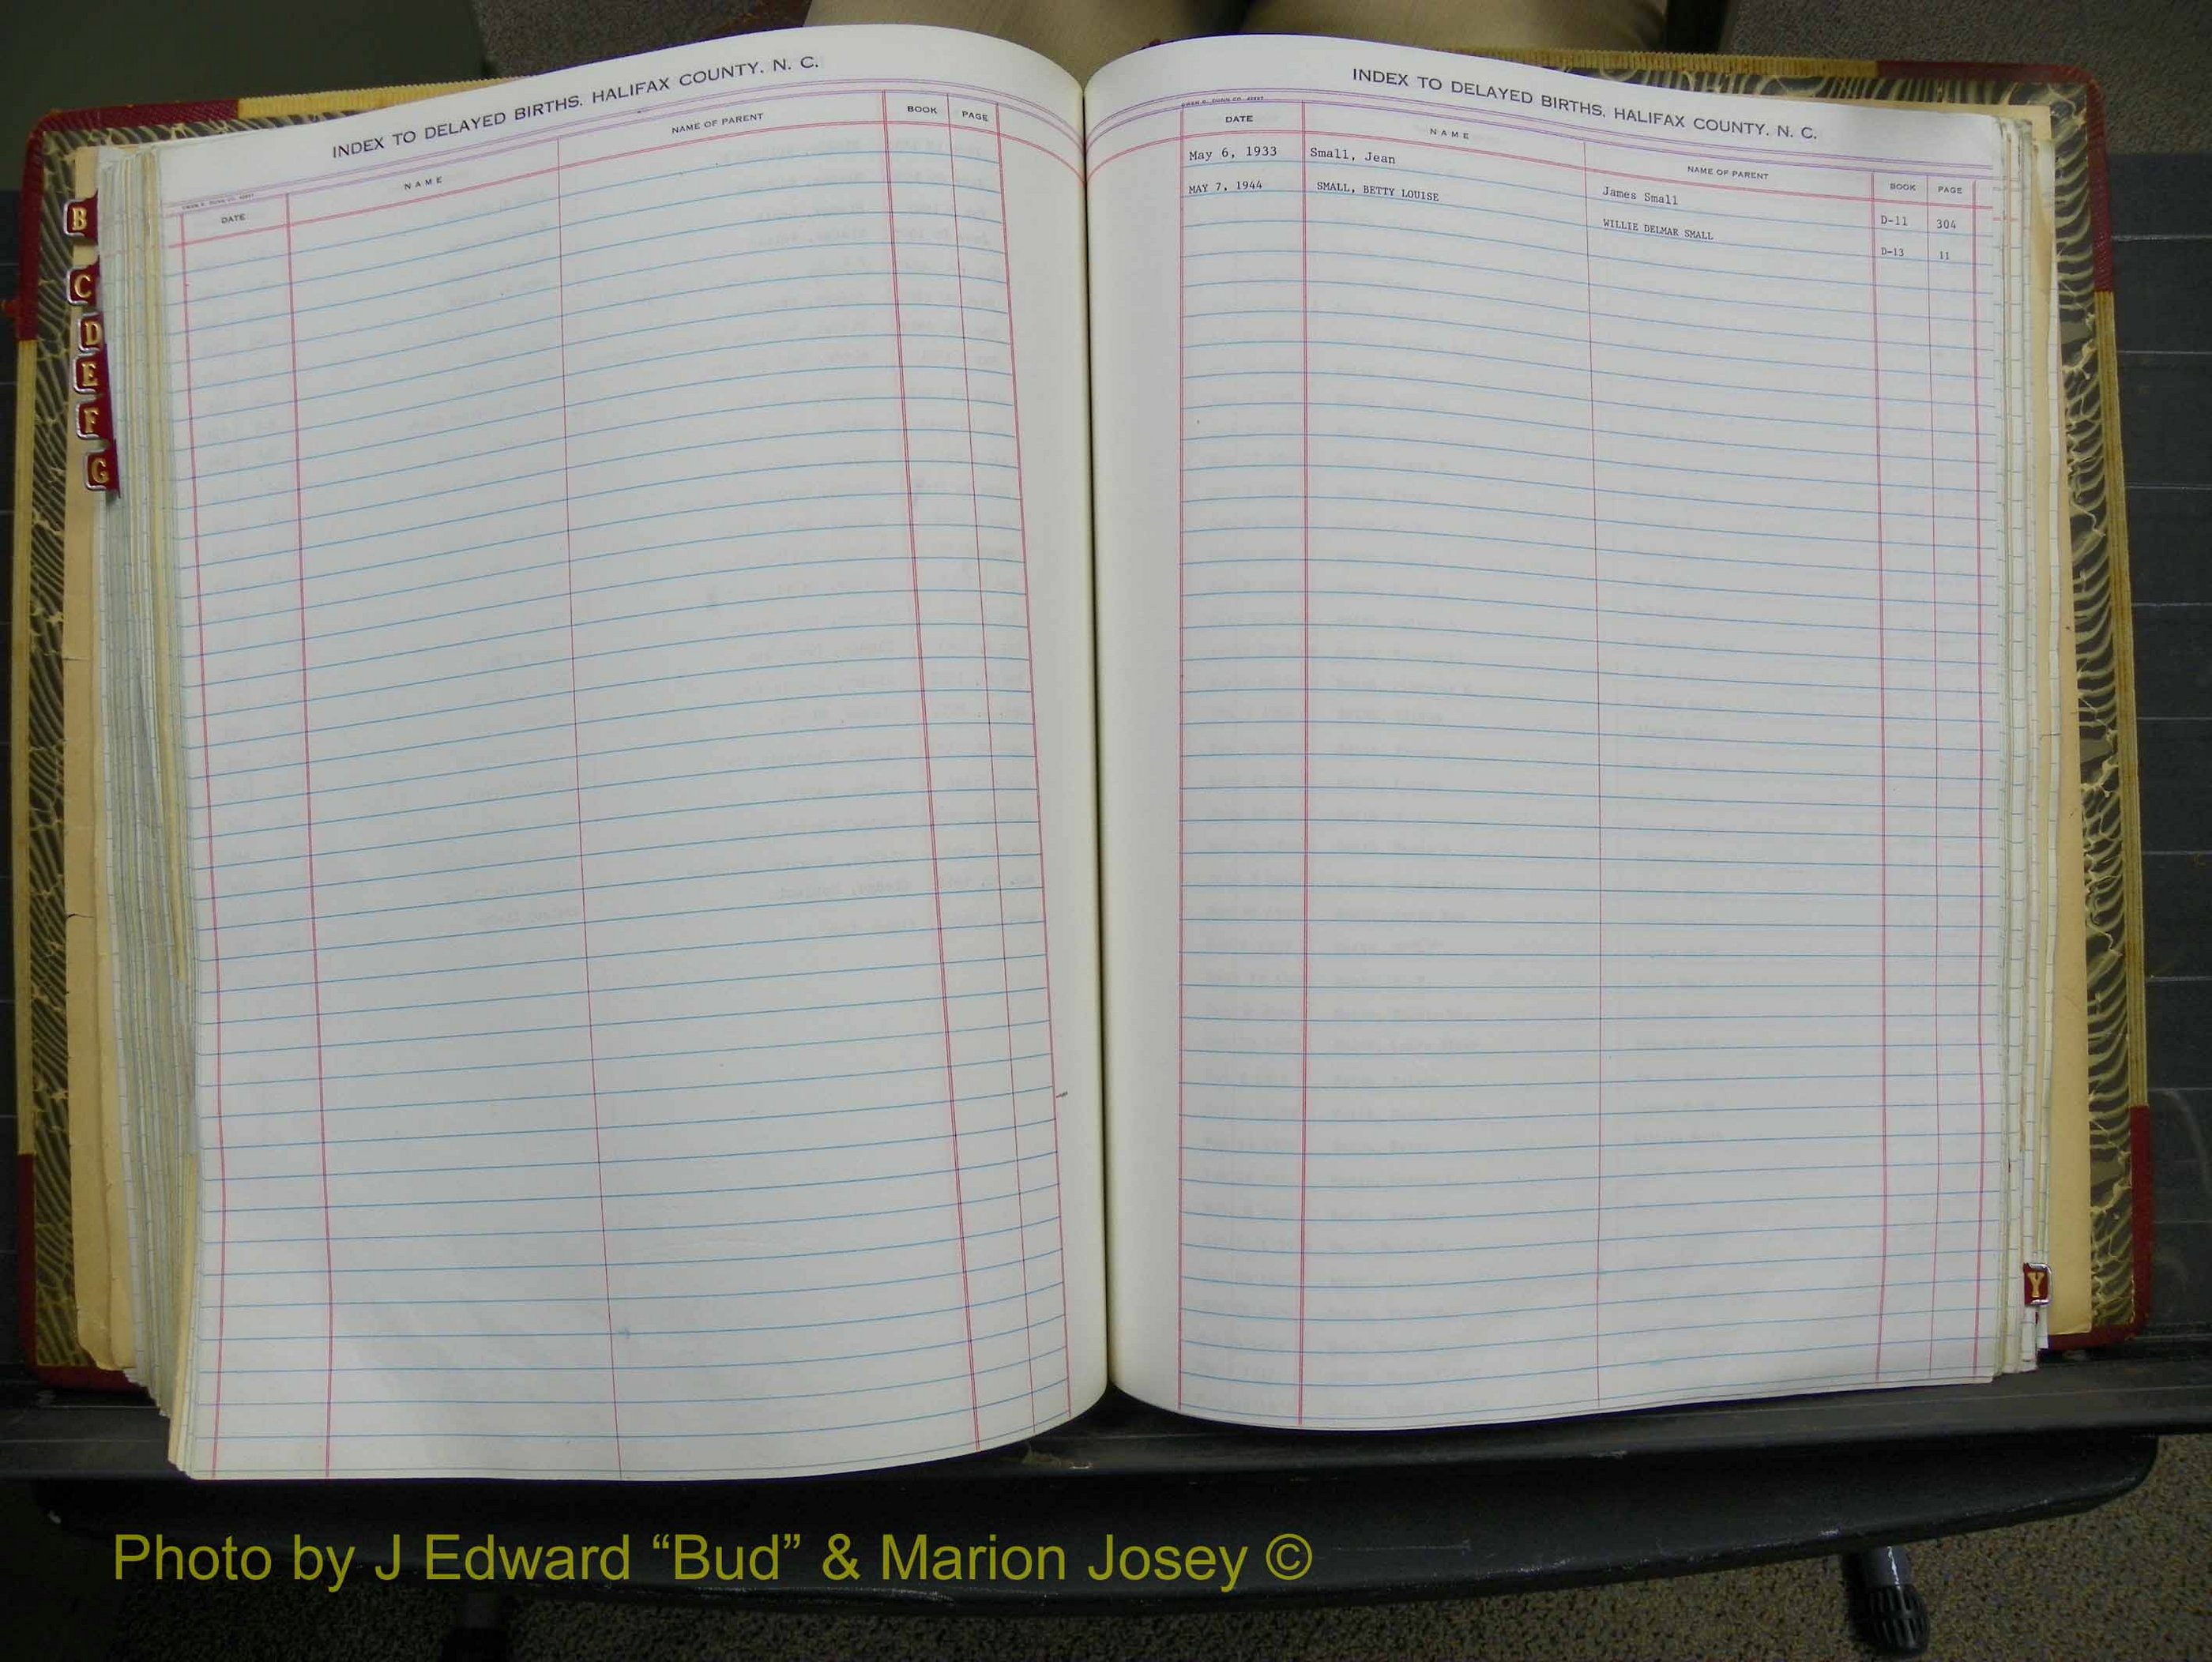 INDEX TO DELAYED BIRTHS, HALIFAX COUNTY, N. C.
DATE NAME NAME OF PARENT BOOK PAGE
B
C
D
E
F
G
INDEX TO DELAYED BIRTHS, HALIFAX COUNTY, N. C.
DATE NAME NAME OF PARENT BOOK PAGE
May 6, 1933 Small, Jean James Small D-11 304
MAY 7, 1944 SMALL, BETTY LOUISE WILLIE DELMAR SMALL D-13 11
Y
Photo by J Edward “Bud” & Marion Josey ©